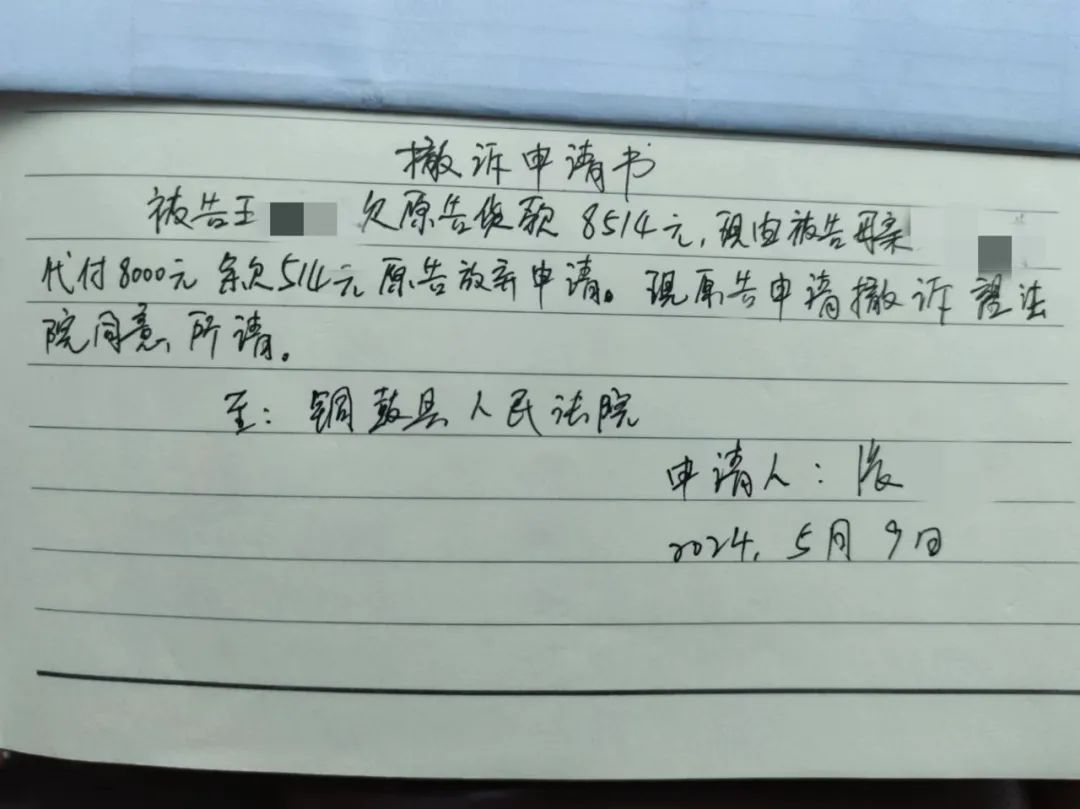 撤诉申请书
被告王 欠原告货款8514元，现由被告母亲
代付8000元 余欠514元原告放弃申请。现原告申请撤诉 望法
院同意所请。
至：铜鼓县人民法院
申请人：张
2024，5月9日